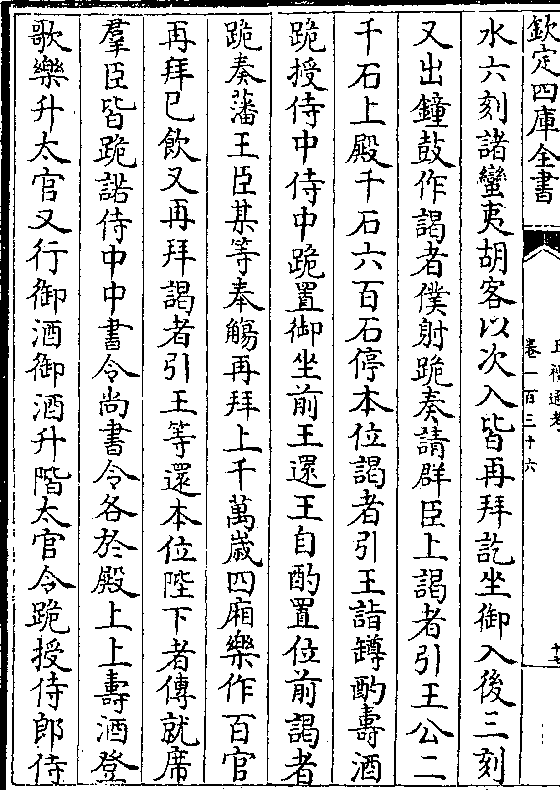 欽定四庫全書
卷一百三十六
水六刻諸蠻夷胡客以次入皆再拜訖坐御入後三刻
又出鐘鼓作謁者僕射跪奏請群臣上謁者引王公二
千石上殿千石六百石停本位謁者引王詣罇酌壽酒
跪授侍中侍中跪置御坐前王還王自酌置位前謁者
跪奏藩王臣某等奉觴再拜上千萬歲四廂樂作百官
再拜已飲又再拜謁者引王等還本位陛下者傳就席
羣臣皆跪諾侍中中書令尚書令各於殿上上壽酒登
歌樂升太官又行御酒御酒升階太官令跪授侍郎侍